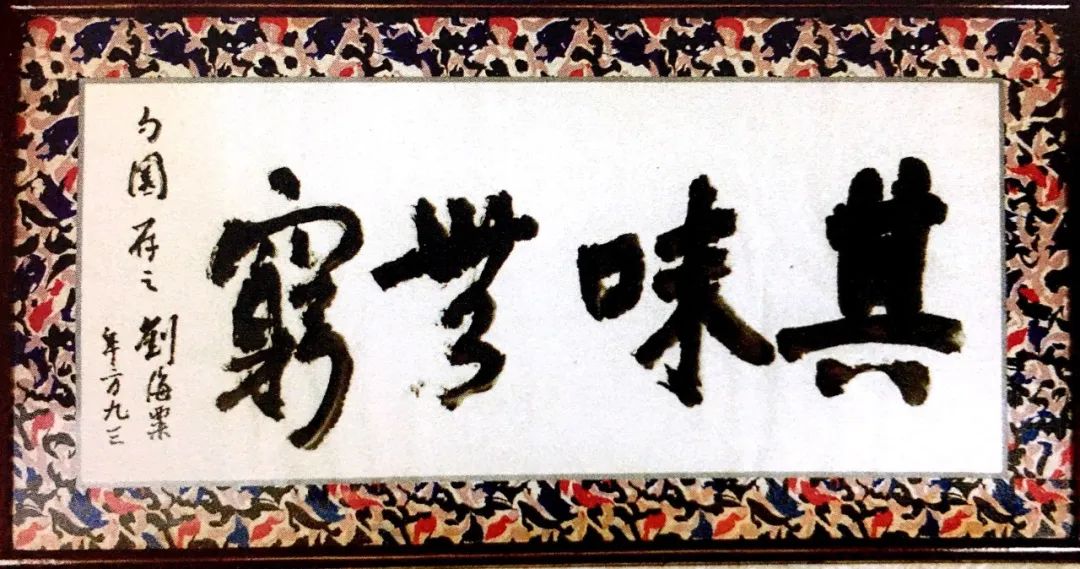 其味無窮
勺園存之 劉海粟
年方九三